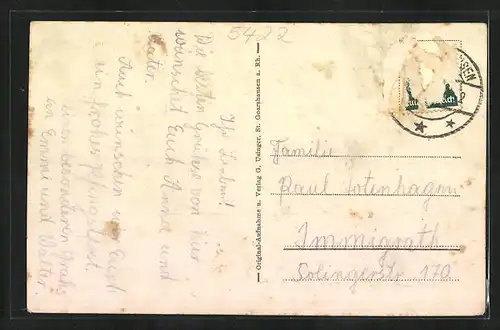 5422
Ihr Lieben!
Die besten Grüsse von hier
wünschet Euch Anna und
Vater.
Auch wünschen wir Euch
ein frohes Pfingstfest.
einen besonderen Gruß
von Emmi und Walter.
— Original-Aufnahme u. Verlag G. Uslager, St. Goarshausen a. Rh. —
Familie
Paul Lotenhagen
Immigrath
Solingerstr 170